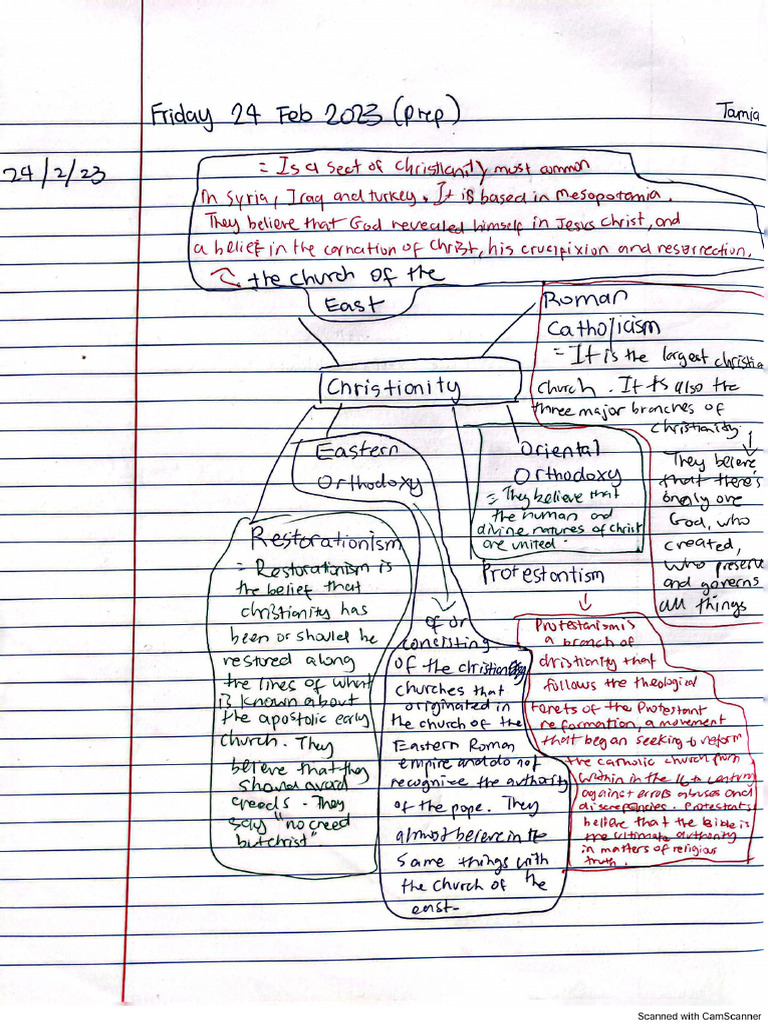 Friday 24 Feb 2023 (prep)
Tamia
24/2/23
= Is a sect of christianity most common
in Syria, Iraq and turkey. It is based in mesopotamia.
They believe that God revealed himself in Jesus christ, and
a belief in the carnation of Christ, his crucifixion and resurrection.
the church of the
East
Roman
Catholicism
= It is the largest christia
church. It is also the
three major branches of
christianity.
They believe
that there's
only one
God, who
created,
who preserve
and governs
all things
Christionity
Eastern
Orthodoxy
Oriental
Orthodoxy
= They believe that
the human and
divine natures of christ
are united.
Restorationism
= Restorationism is
the belief that
christianity has
been or should be
restored along
the lines of what
is known about
the apostolic early
church. They
believe that they
should avoid
creeds. They
say "no creed
but christ"
of or
consisting
of the christian
churches that
originated in
the church of the
Eastern Roman
empire and do not
recognise the authority
of the pope. They
almost believe in the
same things with
the church of the
east-
Protestantism
Protestanism is
a branch of
christianity that
follows the theological
tenets of the Protestant
reformation, a movement
that began seeking to reform
the catholic church from
within in the 16th century
against errors abuses and
discrepencies. Protestants
believe that the Bible is
the ultimate authority
in matters of religious
truth.
Scanned with CamScanner